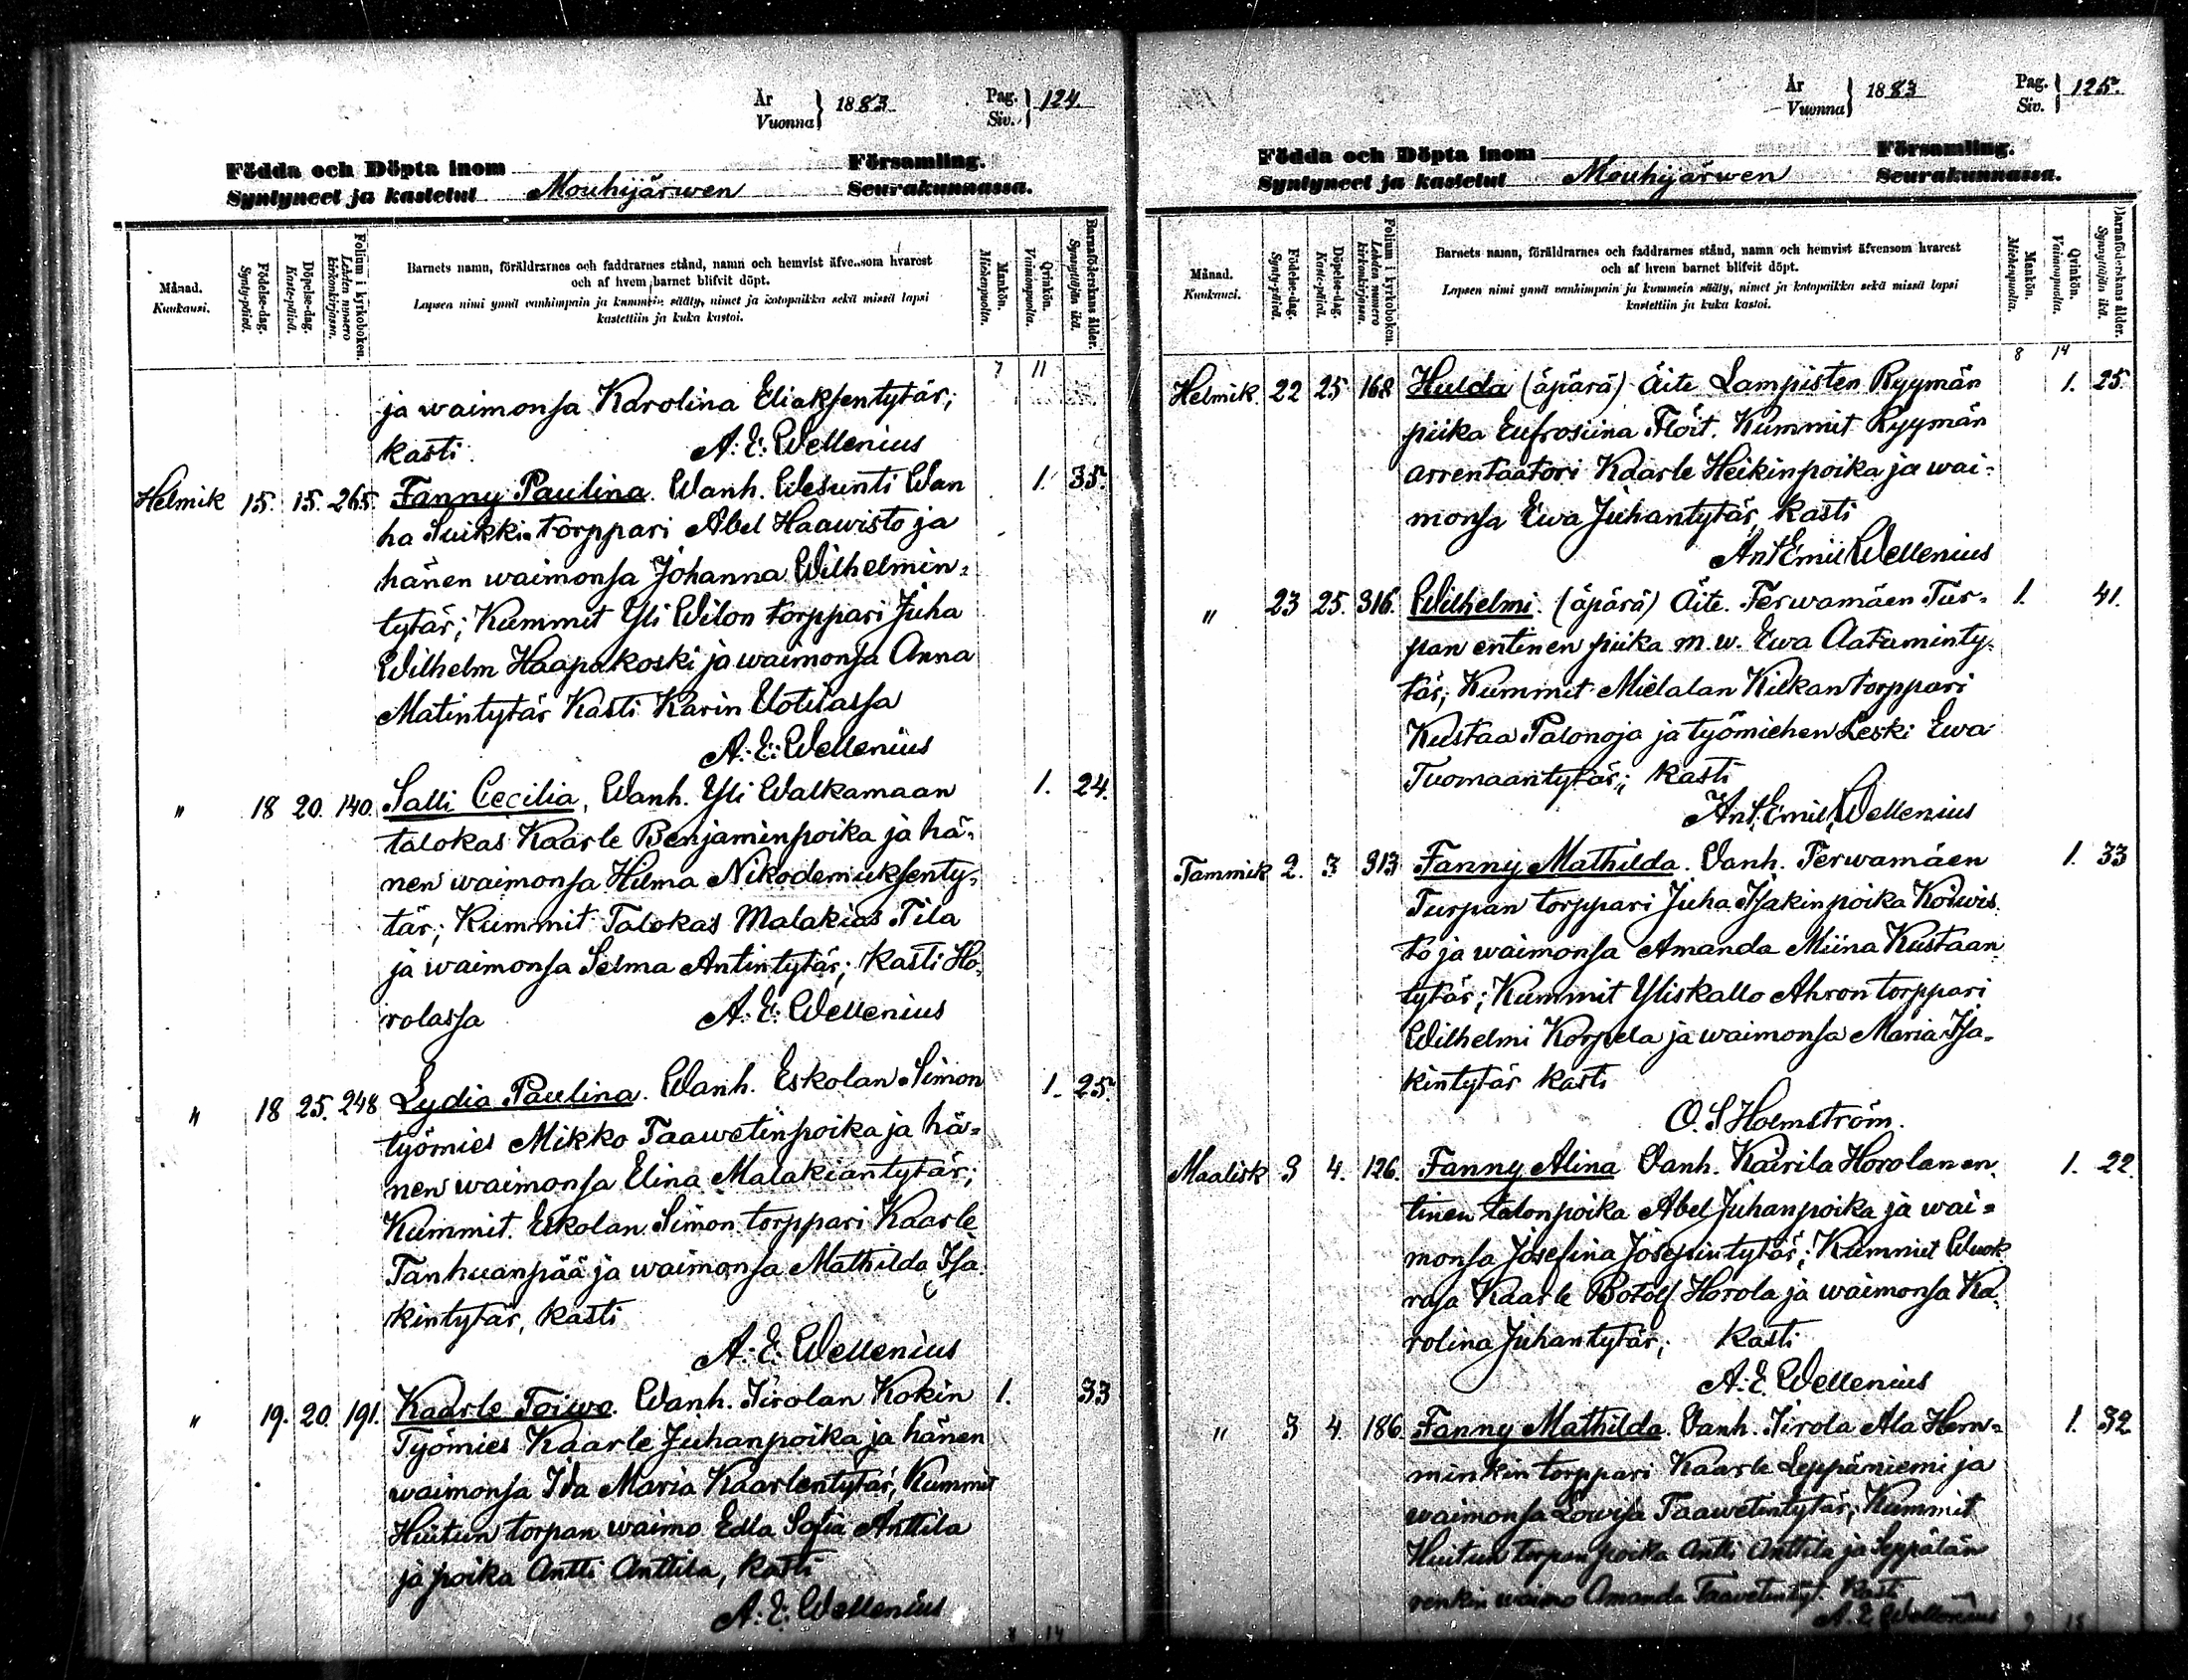 År
Vuonna } 1883
Pag.
Siv. } 124.
Födda och Döpta inom Församling.
Syntyneet ja kastetut Mouhijärwen Seurakunnassa.
Månad.
Kuukausi.
Födelse-dag.
Synty-päivä.
Döpelse-dag.
Kaste-päivä.
Folium i kyrkoboken.
Lehden numero kirkonkirjassa.
Barnets namn, föräldrarnes och faddrarnes stånd, namn och hemvist äfvensom hvarest
och af hvem barnet blifvit döpt.
Lapsen nimi ynnä vanhimpain ja kummein sääty, nimet ja kotopaikka sekä missä lapsi
kastettiin ja kuka kastoi.
Mankön.
Miehenpuolia.
Qvinkön.
Vaimonpuolia.
Barnaföderskans ålder.
Synnyttäjän ikä.
7 11
ja waimonsa Karolina Eliaksentytär;
kasti A. E. Wellenius
Helmik 15. 15. 265. Fanny Paulina. Wanh. Wesunti Wan 1. 35.
ha Suikki torppari Abel Haawisto ja
hänen waimonsa Johanna Wilhelmin-
tytär; Kummit Yli Wilon torppari Juha
Wilhelm Haapakoski ja waimonsa Anna
Matintytär Kasti Karin Uotilassa
A. E. Wellenius
" 18 20. 140. Salli Cecilia, Wanh. Yli Walkamaan 1. 24.
talokas Kaarle Benjaminpoika ja hä-
nen waimonsa Hilma Nikodemuksenty-
tär; Kummit Talokas Malakias Tila
ja waimonsa Selma Antintytär; Kasti Ho-
rolassa A. E. Wellenius
" 18 25. 248 Lydia Paulina. Wanh. Eskolan Simon 1. 25.
työmies Mikko Taawetinpoika ja hä-
nen waimonsa Elina Malakiantytär;
Kummit. Eskolan Simon torppari Kaarle
Tanhuanpää ja waimonsa Mathilda Isa
kintytär, kasti
A. E. Wellenius
" 19. 20. 191. Kaarle Toiwo. Wanh. Tirolan Kokin 1. 33
Työmies Kaarle Juhanpoika ja hänen
waimonsa Ida Maria Kaarlentytär, Kummit
Huitun torpan waimo Edla Sofia Anttila
ja poika Antti Anttila, kasti
A. E. Wellenius
8 14
År
Vuonna } 1883
Pag.
Siv. } 125.
Födda och Döpta inom Församling.
Syntyneet ja kastetut Mouhijärwen Seurakunnassa.
Månad.
Kuukausi.
Födelse-dag.
Synty-päivä.
Döpelse-dag.
Kaste-päivä.
Folium i kyrkoboken.
Lehden numero kirkonkirjassa.
Barnets namn, föräldrarnes och faddrarnes stånd, namn och hemvist äfvensom hvarest
och af hvem barnet blifvit döpt.
Lapsen nimi ynnä vanhimpain ja kummein sääty, nimet ja kotopaikka sekä missä lapsi
kastettiin ja kuka kastoi.
Mankön.
Miehenpuolia.
Qvinkön.
Vaimonpuolia.
Barnaföderskans ålder.
Synnyttäjän ikä.
8 14
Helmik. 22 25 168 Hulda (äpärä) Äite Lampisten Ryymän 1. 25.
piika Eufrosiina Flöit. Kummit Ryymän
arrentaatori Kaarle Heikinpoika ja wai-
monsa Ewa Juhantytär, kasti
Ant Emil Wellenius
" 23 25. 316. Wilhelmi. (äpärä) Äite. Terwamäen Tur- 1. 41.
pan entinen piika m. w. Ewa Aataminty-
tär; Kummit Mielalan Kiikan torppari
Kustaa Palonoja ja työmiehen Leski Ewa
Tuomaantytär; kasti
Ant. Emil Wellenius
Tammik 2. 3 313 Fanny Mathilda. Vanh. Terwamäen 1. 33
Turpan torppari Juha Isakinpoika Koiwis
to ja waimonsa Amanda Miina Kustaan
tytär; Kummit Yliskallo Ahron torppari
Wilhelmi Korpela ja waimonsa Maria Isa-
kintytär kasti
O. S Holmström.
Maalisk 3 4. 126. Fanny Alina Vanh. Kairila Horolan en 1. 22.
tinen talonpoika Abel Juhanpoika ja wai-
monsa Josefina Josepintytär; Kummit Wuok
raja Kaarle Botolf Horola ja waimonsa Ka
rolina Juhantytär; kasti
A. E. Wellenius
" 3 4. 186. Fanny Mathilda. Vanh. Tirola Ala Hem- 1. 32
minkin torppari Kaarle Leppäniemi ja
waimonsa Lowisa Taawetintytär; Kummit
Huitun torpan poika Antti Anttila ja Seppälän
renkin waimo Amanda Taavetintyt. kasti
A. E. Wellenius
9 18